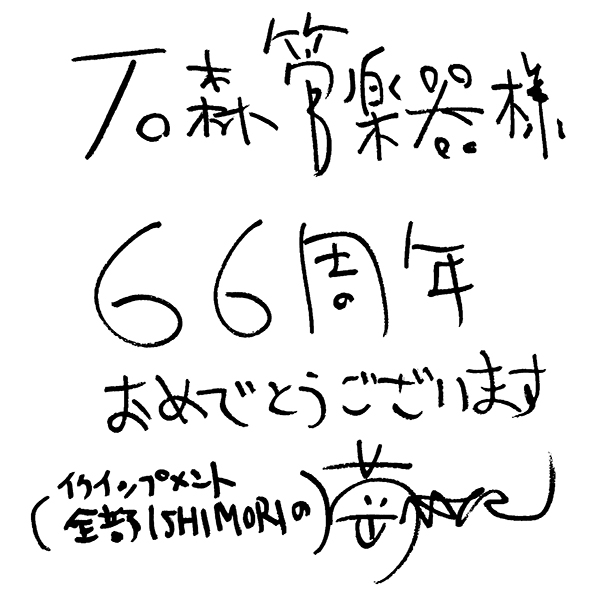 石森管楽器様
66周年
おめでとうございます
(イクイップメント
全部ISHIMORIの)